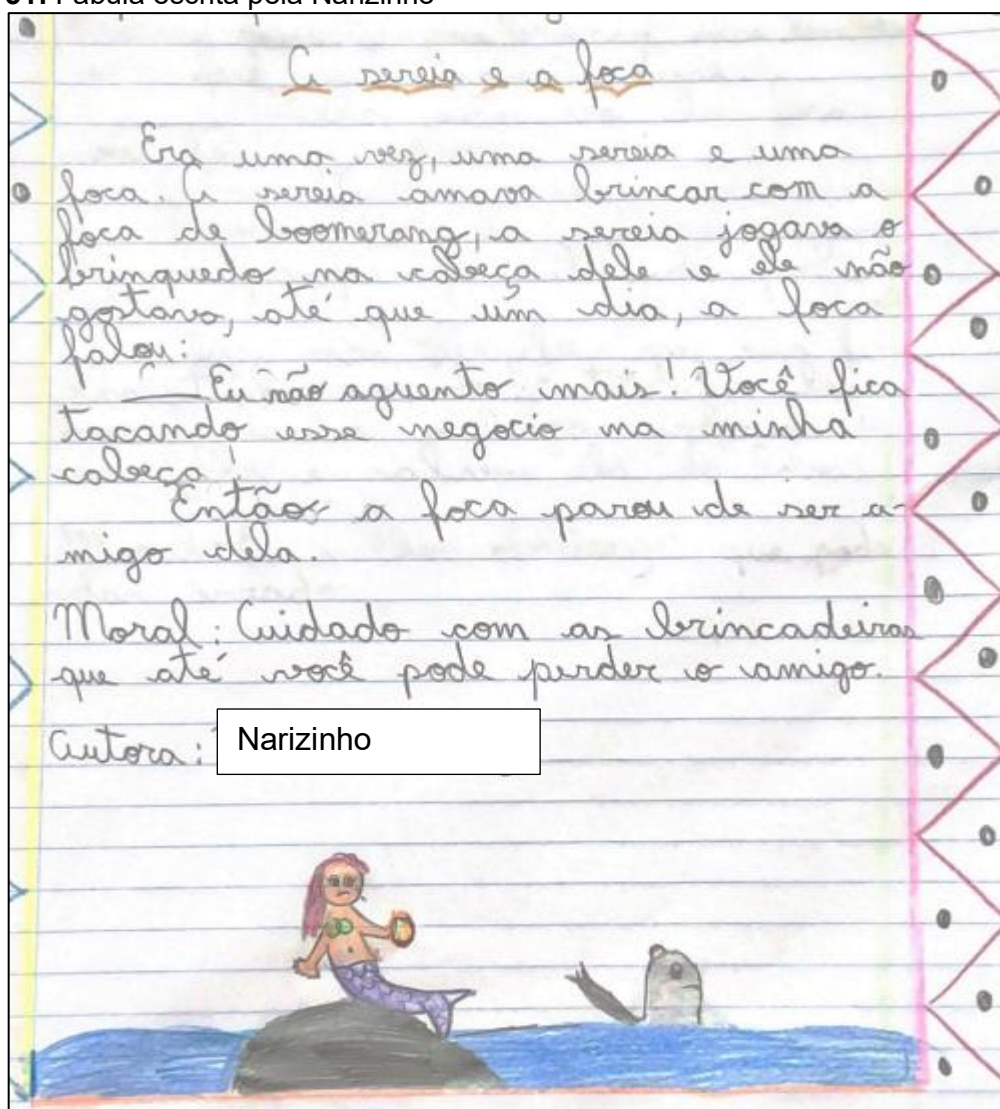 31. Fábula escrita pela Narizinho
A sereia e a foca
Era uma vez, uma sereia e uma
foca. A sereia amava brincar com a
foca de boomerang, a sereia jogava o
brinquedo na cabeça dele e ele não
gostava, até que um dia, a foca
falou:
— Eu não aguento mais! Você fica
tacando esse negocio na minha
cabeça!
Então a foca parou de ser a-
migo dela.
Moral: Cuidado com as brincadeiras
que até você pode perder o amigo.
Autora:
Narizinho